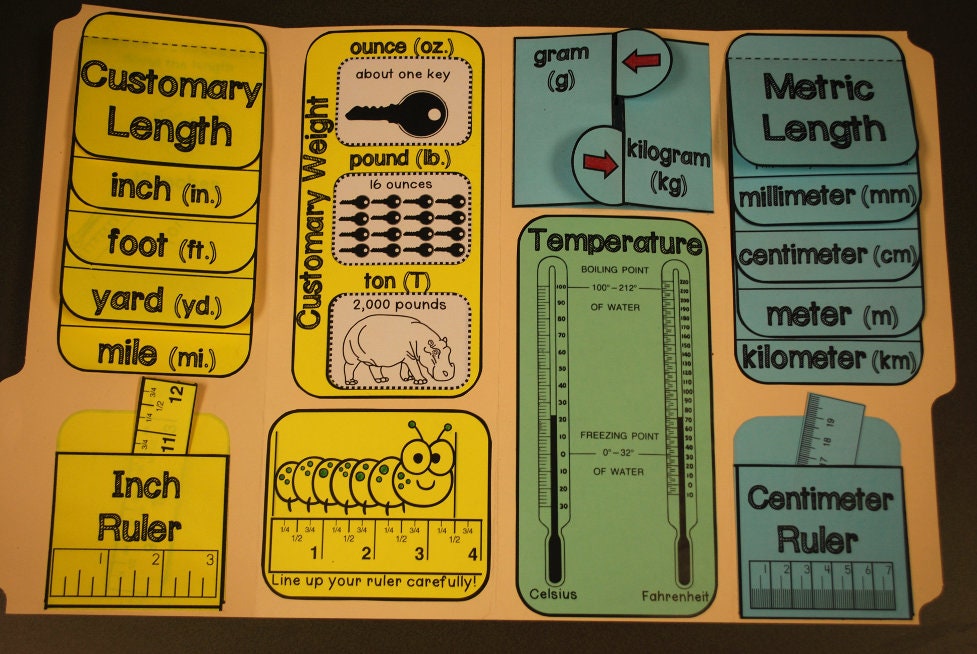 Customary
Length
inch (in.)
foot (ft.)
yard (yd.)
mile (mi.)
3/4 1/2 3/4 11 12
Inch
Ruler
1 2 3
Customary Weight
ounce (oz.)
about one key
pound (lb.)
16 ounces
ton (T)
2,000 pounds
1/4 1/2 3/4 1/4 1/2 3/4 1/4 1/2 3/4 1/4 1/2 3/4
1 2 3 4
Line up your ruler carefully!
gram
(g)
kilogram
(kg)
Temperature
BOILING POINT
100°-212°
OF WATER
FREEZING POINT
0°-32°
OF WATER
100
90
80
70
60
50
40
30
20
10
0
10
20
30
Celsius
Fahrenheit
Metric
Length
millimeter (mm)
centimeter (cm)
meter (m)
kilometer (km)
17 18 19
Centimeter
Ruler
1 2 3 4 5 6 7